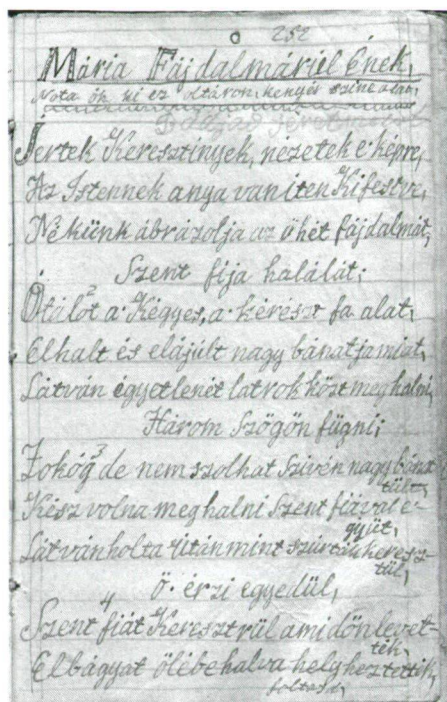 252
Mária Fájdalmárúl Ének,
Nota óh ki ez oltáron, kenyér szine alat,
Jertek Keresztinyek, nézetek e képre,
Az Istennek anya van iten Kifestve,
Nékünk ábrázolja az ő hét fájdalmát,
Szent fija halálát;
2
Ot álót a Kegyes, a kérészt fa alat,
Elhalt és elájúlt nagy bánatja miat,
Látván égyetlenét latrok közt meghalni,
Három Szögön fügni;
3
Zokóg de nem szolhat Szivén nagy bána
túlt,
Kész volna meghalni Szent fiával e-
gyüt,
Látván holta Után mint szúrták keresz
tül,
Ö. érzi egyedül,
4
Szent fiát Keresztrül amidőn levet-
ték,
Elbágyat ölébe halva helyheztették,